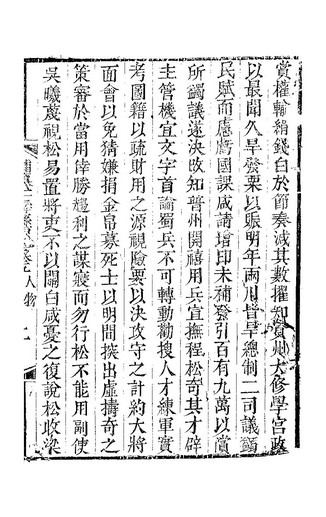 賞權輸絹錢白於節奏減其數擢知資州大修學宮政
以最聞久旱發粟以賑明年兩川皆旱總制二司議蠲
民賦而慮虧國課咸請增印未補發引百有九萬以賞
所蠲議遂決改知普州開禧用兵宣撫程松奇其才辟
主管機宜文字首論蜀兵不可輕動勸搜人才練軍實
考圖籍以疏財用之源視險要以決攻守之計約大將
面會以免猜嫌捐金帛募死士以明間掞出虛擣奇之
策審於當用倖勝趨利之謀寢而勿行松不能用副使
吳曦蔑視松易置將吏不以關白咸憂之復說松收梁
人物